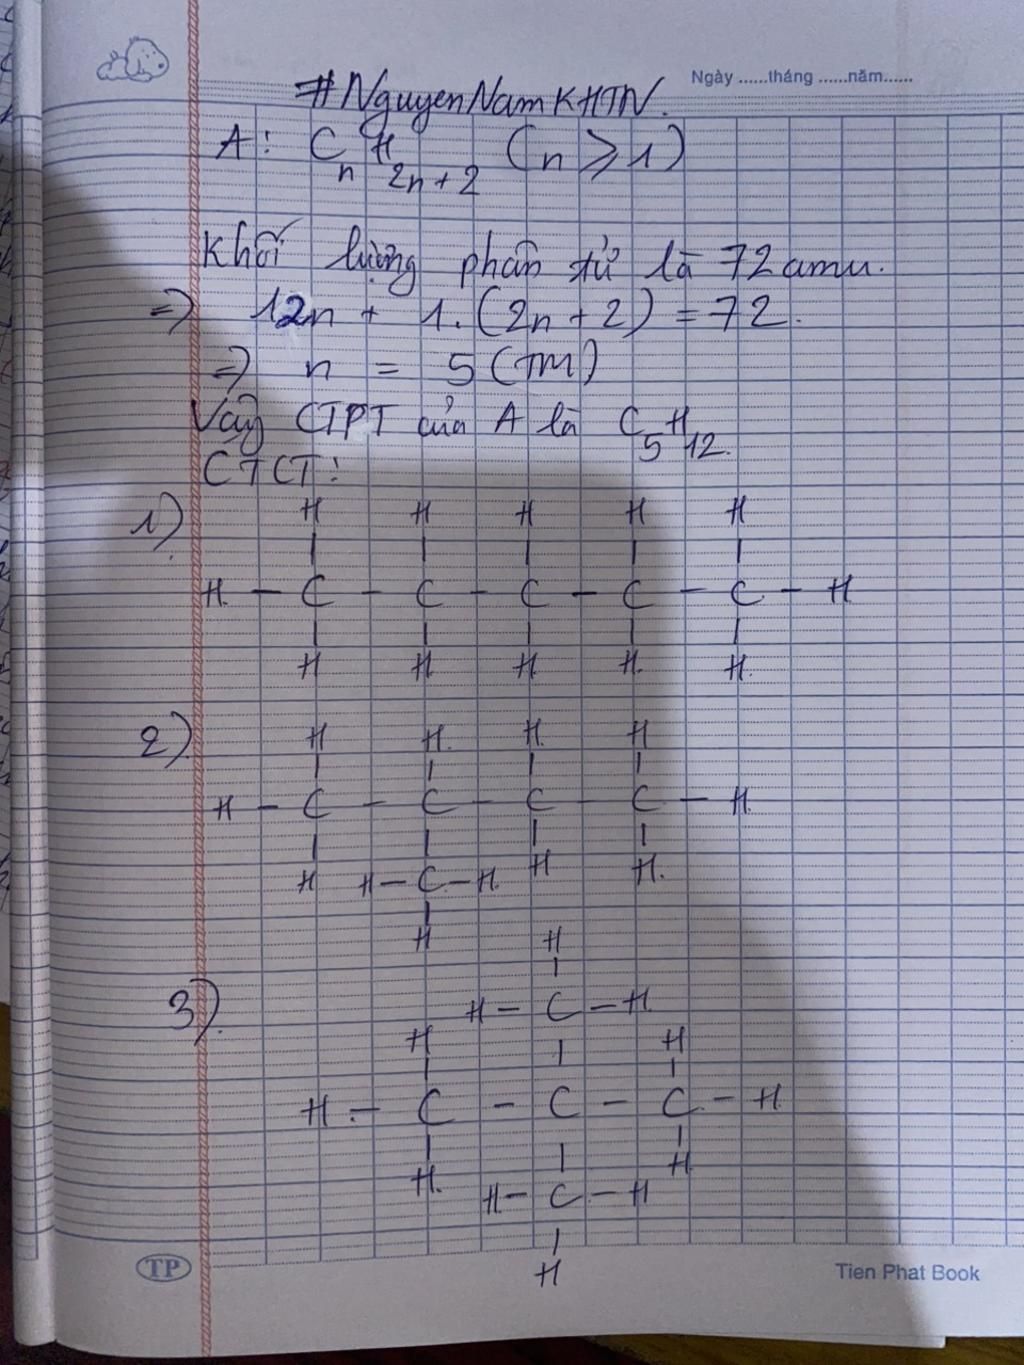 Ngày ......tháng ......năm......
#NguyenNamKHTN.
A: CnH2n+2 (n ⩾ 1)
Khối lượng phân tử là 72 amu.
=> 12n + 1.(2n + 2) = 72.
=> n = 5 (TM)
Vậy CTPT của A là C5H12.
CTCT:
1)
H H H H H
H - C - C - C - C - C - H
H H H H. H
2)
H H. H. H
H - C - C - C - C - H.
H H - C - H. H H.
H
3)
H
H - C - H.
H H
H - C - C - C - H
H. H
H - C - H
H
TP
Tien Phat Book